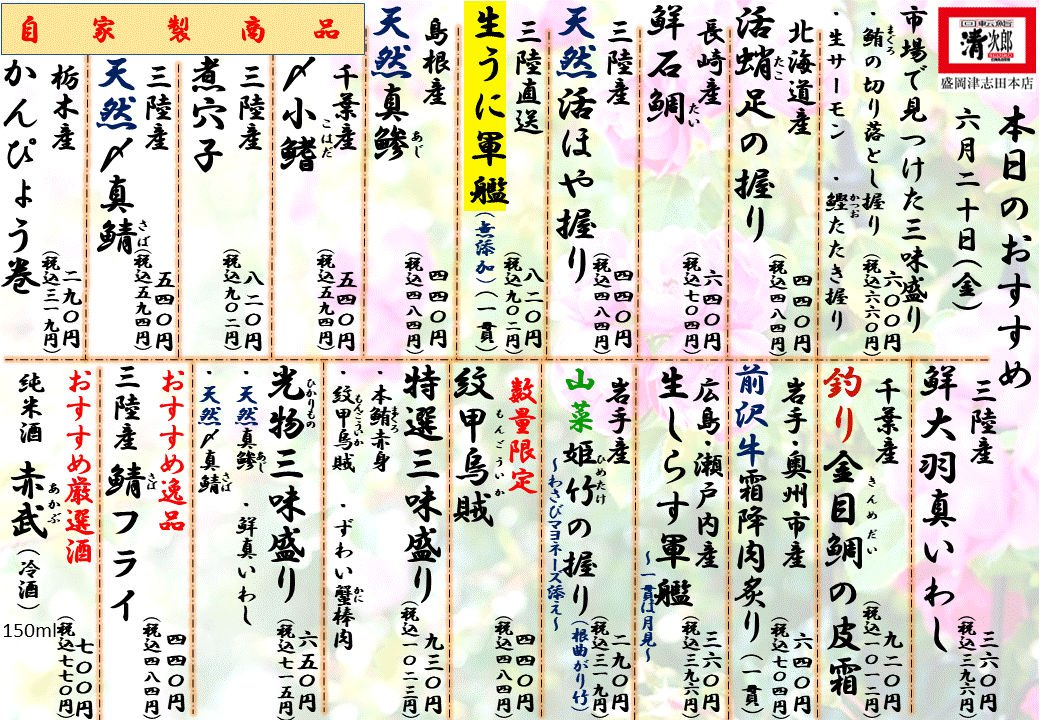 回転鮨
清次郎
SEIJIRO
盛岡津志田本店
本日のおすすめ
六月二十日(金)
市場で見つけた三味盛り
・鮪の切り落とし握り
まぐろ
・生サーモン ・鰹たたき握り
かつお
六〇〇円
(税込六六〇円)
北海道産
活蛸足の握り
たこ
四四〇円
(税込四八四円)
長崎産
鮮石鯛
だい
六四〇円
(税込七〇四円)
三陸産
天然活ほや握り
四四〇円
(税込四八四円)
三陸直送
生うに軍艦
(無添加)(一貫)
八二〇円
(税込九〇二円)
島根産
天然真鯵
あじ
四四〇円
(税込四八四円)
自家製商品
千葉産
〆小鰭
こはだ
五四〇円
(税込五九四円)
三陸産
煮穴子
八二〇円
(税込九〇二円)
三陸産
天然〆真鯖
さば
五四〇円
(税込五九四円)
栃木産
かんぴょう巻
二九〇円
(税込三一九円)
三陸産
鮮大羽真いわし
三六〇円
(税込三九六円)
千葉産
釣り金目鯛の皮霜
きんめだい
九二〇円
(税込一〇一二円)
岩手・奥州市産
前沢牛霜降肉炙り(一貫)
六四〇円
(税込七〇四円)
広島・瀬戸内産
生しらす軍艦
～一貫は月見～
三六〇円
(税込三九六円)
岩手産
山菜姫竹の握り(根曲がり竹)
ひめたけ
～わさびマヨネーズ添え～
二九〇円
(税込三一九円)
数量限定
紋甲烏賊
もんごういか
四四〇円
(税込四八四円)
特選三味盛り
・本鮪赤身
まぐろ
・紋甲烏賊 ・ずわい蟹棒肉
もんごういか
かに
九三〇円
(税込一〇二三円)
光物三味盛り
ひかりもの
・天然真鯵 ・鮮真いわし
あじ
・天然〆真鯖
さば
六五〇円
(税込七一五円)
おすすめ逸品
三陸産 鯖フライ
さば
四四〇円
(税込四八四円)
おすすめ厳選酒
純米酒 赤武(冷酒)
あかぶ
150ml
七〇〇円
(税込七七〇円)